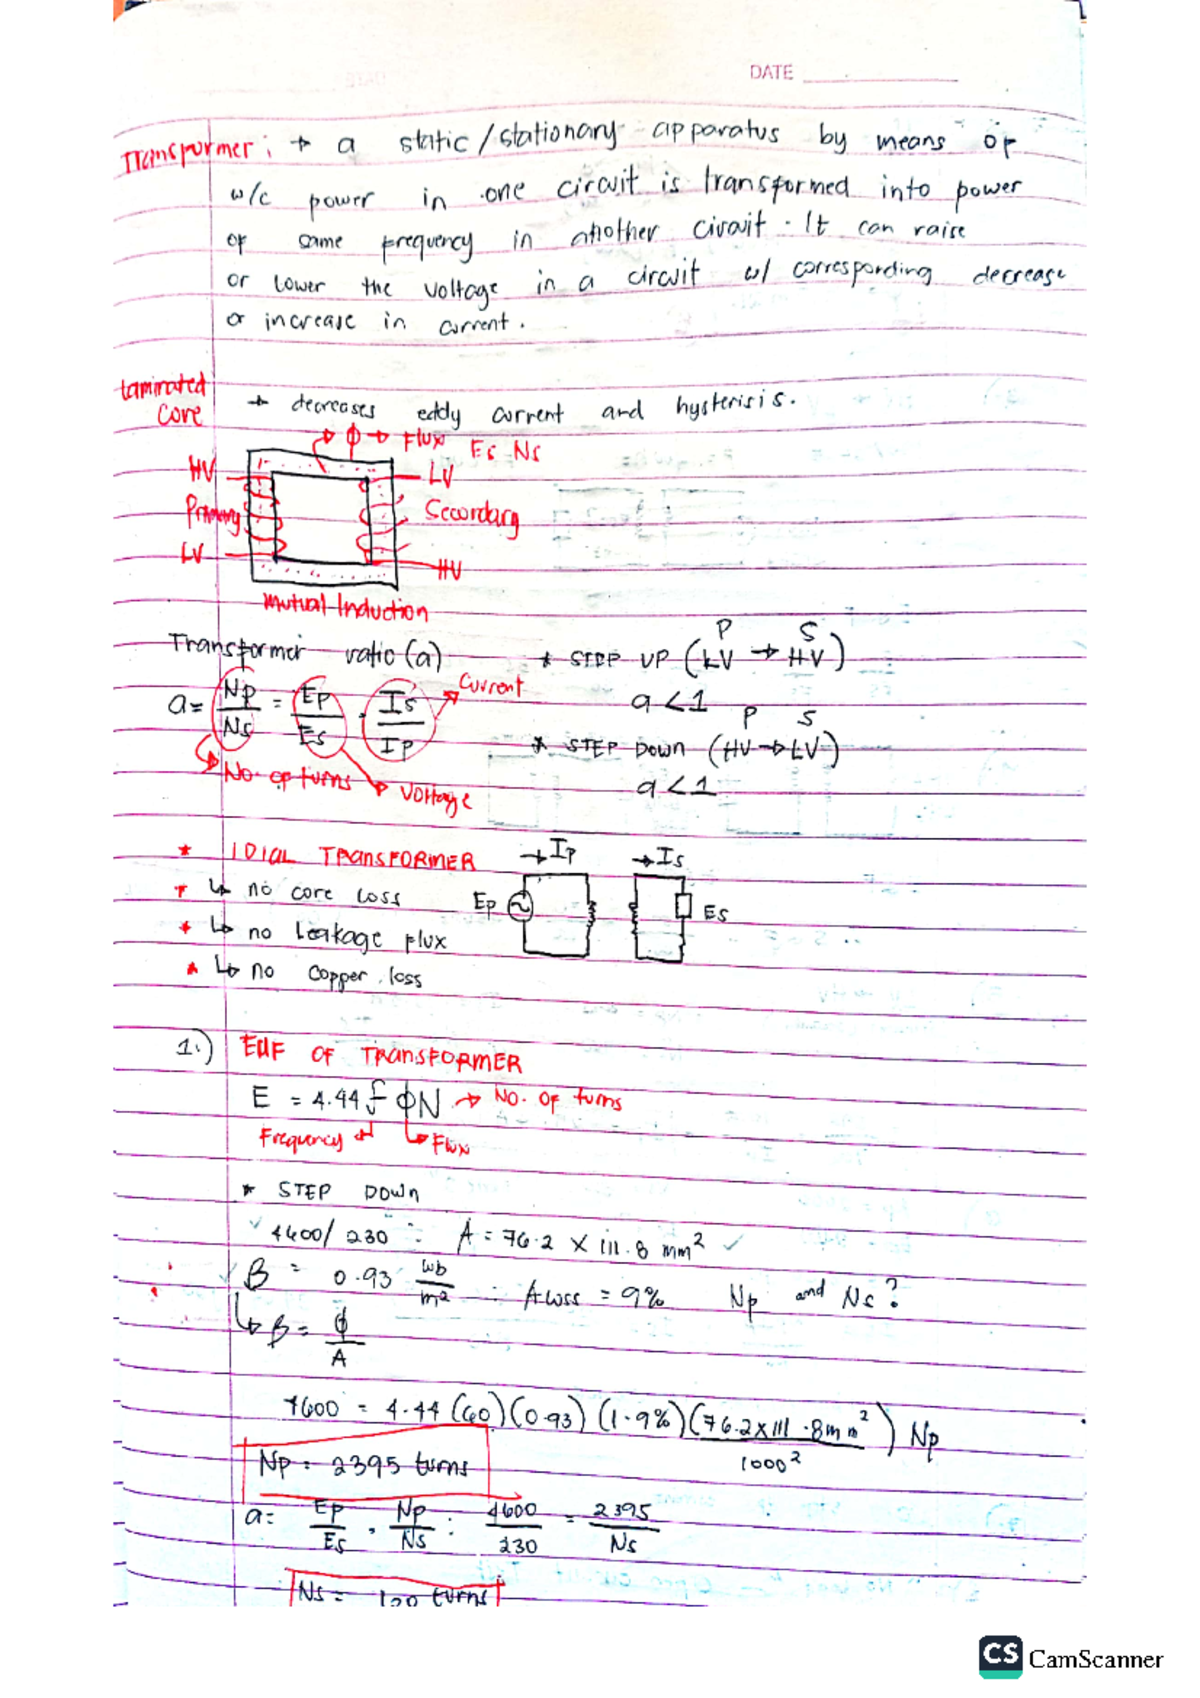 DATE
Transformer: → a static/stationary apparatus by means of
w/c power in one circuit is transformed into power
of same frequency in another circuit. It can raise
or lower the voltage in a circuit w/ corresponding decrease
or increase in current.
Laminated
Core → decreases eddy current and hysterisis.
ϕ → Flux Es Ns
HV LV
Primary Secondary
LV HV
Mutual Induction
Transformer ratio (a)
a = Np/Ns = Ep/Es = Is/Ip
Current
No. of turns
Voltage
P S
* STEP UP (LV → HV)
a < 1
P S
* STEP Down (HV → LV)
a < 1
* IDIAL TRANSFORMER
↳ no core loss
* ↳ no leakage flux
* ↳ no copper loss
→ Ip → Is
Ep Es
1.) EMF OF TRANSFORMER
E = 4.44 f ϕ N → No. of turns
Frequency ↲ ↳ Flux
* STEP DOWN
✓ 4600/230 : A = 76.2 x 111.8 mm² ✓
✓ B = 0.93 wb/m² : A loss = 9% Np and Ns?
↳ B = ϕ/A
4600 = 4.44 (60)(0.93)(1-9%)(76.2x111.8mm²/1000²) Np
Np = 2395 turns
a = Ep/Es = Np/Ns : 4600/230 = 2395/Ns
Ns = 120 turns
CS CamScanner